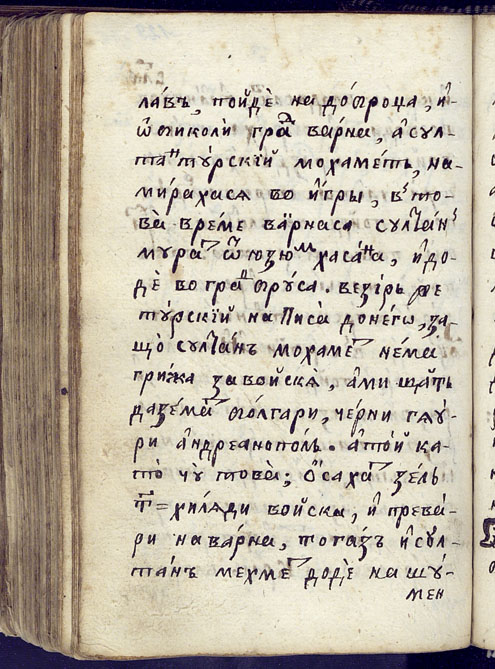 ла́въ, пойдѐ на до́броца, и҆-
ѡ҆би́коли̏ гра̀д ва́рна, а҆ сул-
танъ ту́рскїй мохаме́тъ, на-
мира́хасѧ во и҆гры, въ то-
ва̀ вре́ме ва̀рнаса султа́нъ
мурат ѿ ю҆зюм хаса́на, и҆ до-
дѐ во град бру́са. вези́рь же
ту́рскїй написа̀ до не́гѡ, за-
що̀ султа́нъ мохаме́т не́ма
гри́жа за во́йскѧ, а҆ми щатъ
да зе́мат бо́лгари, че́рни гѧу҆-
ри а҆ндреанополь. а҆ то́й ка-
то̀ чу̀ това̀; ѡ҆саха́т зе́лъ
т҃= хилѧди войска, и҆ прева́-
ри на ва́рна, тога́зъ и҆ сул-
та́нъ мехме́т додѐ на шу́-
мен